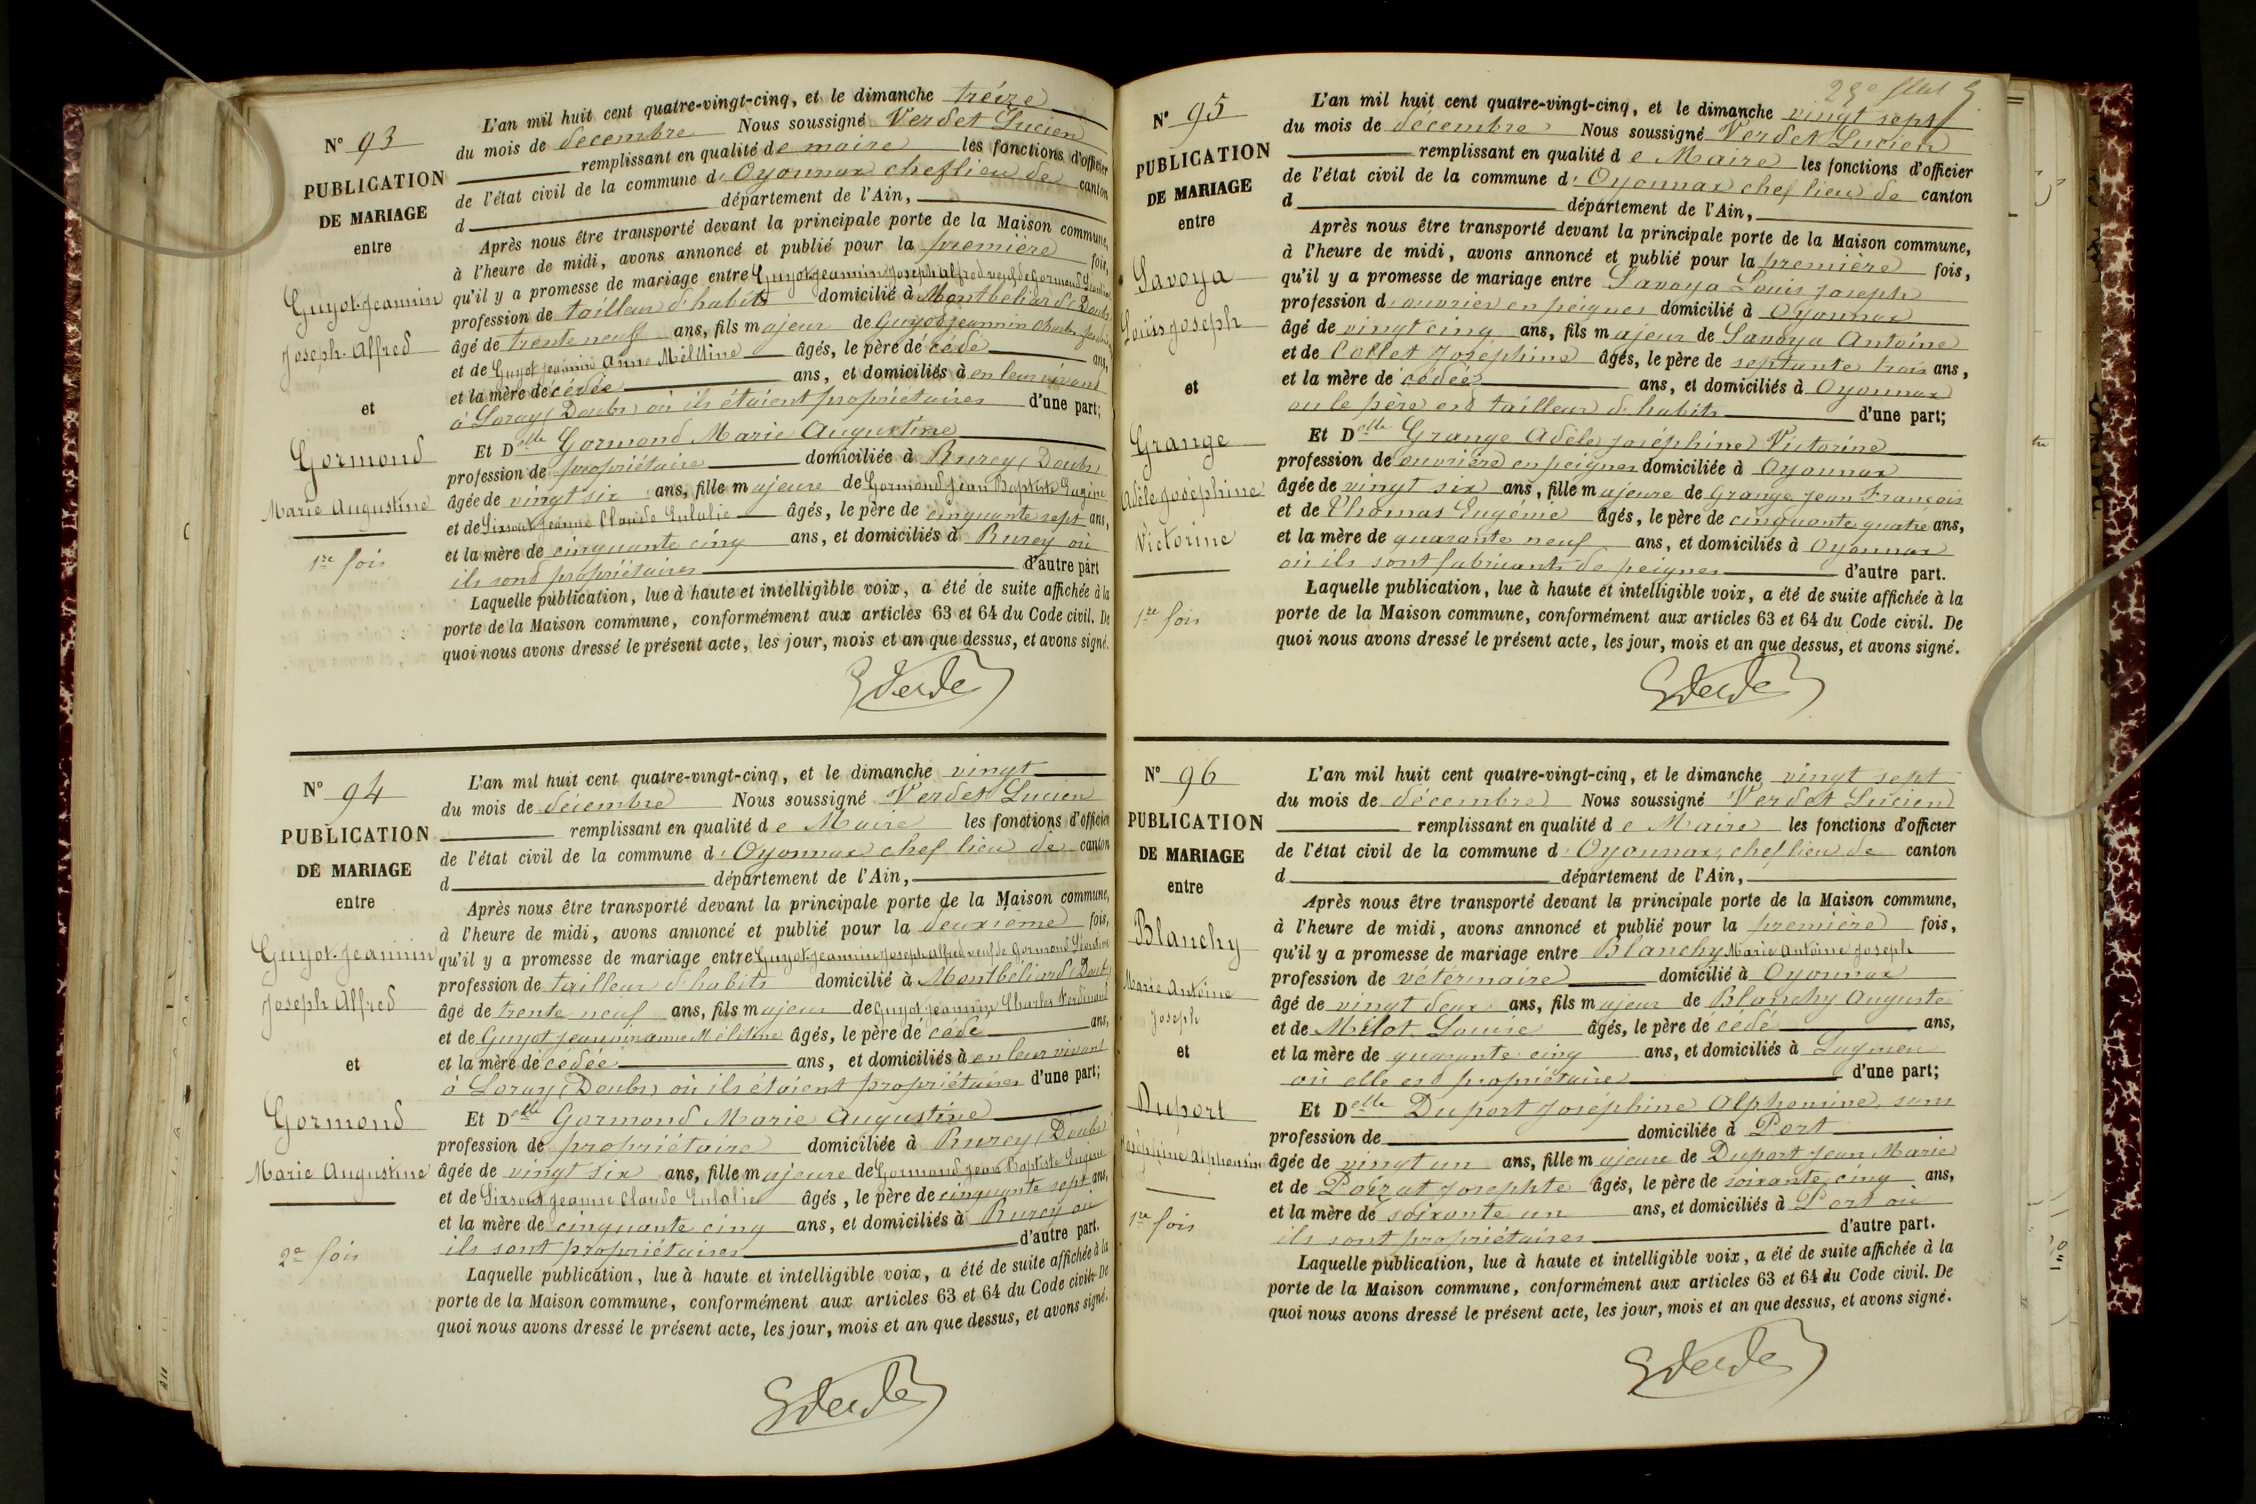 N° 93
PUBLICATION
DE MARIAGE
entre
Guyot-Jeannin
Joseph-Alfred
et
Gormond
Marie Augustine
1re fois
L'an mil huit cent quatre-vingt-cinq, et le dimanche treize
du mois de décembre Nous soussigné Verdet Lucien
remplissant en qualité de maire les fonctions d'officier
de l'état civil de la commune d'Oyonnax chef lieu de canton
d département de l'Ain,
Après nous être transporté devant la principale porte de la Maison commune,
à l'heure de midi, avons annoncé et publié pour la première fois,
qu'il y a promesse de mariage entre Guyot-Jeannin Joseph Alfred veuf de Gormond
profession de tailleur d'habits domicilié à Montbéliard (Doubs
âgé de trente neuf ans, fils majeur de Guyot Jeannin Charles
et de Guyot Jeannin Anne Mélitine âgés, le père de cédé ans,
et la mère de cédée ans, et domiciliés à en leur vivant
à Loray (Doubs) où ils étaient propriétaires d'une part;
Et Delle Gormond Marie Augustine
profession de propriétaire domiciliée à Rurey (Doubs
âgée de vingt six ans, fille majeure de Gormond Jean Baptiste Eugène
et de Jeanne Claude Eulalie âgés, le père de cinquante sept ans,
et la mère de cinquante cinq ans, et domiciliés à Rurey où
ils sont propriétaires d'autre part
Laquelle publication, lue à haute et intelligible voix, a été de suite affichée à la
porte de la Maison commune, conformément aux articles 63 et 64 du Code civil. De
quoi nous avons dressé le présent acte, les jour, mois et an que dessus, et avons signé.
N° 94
PUBLICATION
DE MARIAGE
entre
Guyot-Jeannin
Joseph Alfred
et
Gormond
Marie Augustine
2e fois
L'an mil huit cent quatre-vingt-cinq, et le dimanche vingt
du mois de décembre Nous soussigné Verdet Lucien
remplissant en qualité de Maire les fonctions d'officier
de l'état civil de la commune d'Oyonnax chef lieu de canton
d département de l'Ain,
Après nous être transporté devant la principale porte de la Maison commune,
à l'heure de midi, avons annoncé et publié pour la deuxième fois,
qu'il y a promesse de mariage entre Guyot-Jeannin Joseph Alfred veuf de Gormond
profession de tailleur d'habits domicilié à Montbéliard (Doubs
âgé de trente neuf ans, fils majeur de Guyot Jeannin Charles Ferdinand
et de Guyot Jeannin anne Mélitine âgés, le père de cédé ans,
et la mère de cédée ans, et domiciliés à en leur vivant
à Loray (Doubs) où ils étaient propriétaires d'une part;
Et Delle Gormond Marie Augustine
profession de propriétaire domiciliée à Rurey (Doubs
âgée de vingt six ans, fille majeure de Gormond Jean Baptiste Eugène
et de Jeanne Claude Eulalie âgés, le père de cinquante sept ans,
et la mère de cinquante cinq ans, et domiciliés à Rurey où
ils sont propriétaires d'autre part.
Laquelle publication, lue à haute et intelligible voix, a été de suite affichée à la
porte de la Maison commune, conformément aux articles 63 et 64 du Code civil. De
quoi nous avons dressé le présent acte, les jour, mois et an que dessus, et avons signé.
N° 95
PUBLICATION
DE MARIAGE
entre
Savoya
Louis Joseph
et
Grange
Adèle Joséphine
Victorine
1re fois
L'an mil huit cent quatre-vingt-cinq, et le dimanche vingt sept
du mois de décembre Nous soussigné Verdet Lucien
remplissant en qualité de Maire les fonctions d'officier
de l'état civil de la commune d'Oyonnax chef lieu de canton
d département de l'Ain,
Après nous être transporté devant la principale porte de la Maison commune,
à l'heure de midi, avons annoncé et publié pour la première fois,
qu'il y a promesse de mariage entre Savoya Louis Joseph
profession d'ouvrier en peignes domicilié à Oyonnax
âgé de vingt cinq ans, fils majeur de Savoya Antoine
et de Collet Josephine âgés, le père de septante trois ans,
et la mère de cédée ans, et domiciliés à Oyonnax
ou le père est tailleur d'habits d'une part;
Et Delle Grange Adèle joséphine Victorine
profession de ouvrière en peignes domiciliée à Oyonnax
âgée de vingt six ans, fille majeure de Grange Jean François
et de Thomas Eugénie âgés, le père de cinquante quatre ans,
et la mère de quarante neuf ans, et domiciliés à Oyonnax
où ils sont fabricants de peignes d'autre part.
Laquelle publication, lue à haute et intelligible voix, a été de suite affichée à la
porte de la Maison commune, conformément aux articles 63 et 64 du Code civil. De
quoi nous avons dressé le présent acte, les jour, mois et an que dessus, et avons signé.
N° 96
PUBLICATION
DE MARIAGE
entre
Blanchy
Marie Antoine
Joseph
et
Duport
Joséphine Alphonsine
1re fois
L'an mil huit cent quatre-vingt-cinq, et le dimanche vingt sept
du mois de décembre Nous soussigné Verdet Lucien
remplissant en qualité de Maire les fonctions d'officier
de l'état civil de la commune d'Oyonnax, chef lieu de canton
d département de l'Ain,
Après nous être transporté devant la principale porte de la Maison commune,
à l'heure de midi, avons annoncé et publié pour la première fois,
qu'il y a promesse de mariage entre Blanchy Marie Antoine Joseph
profession de vétérinaire domicilié à Oyonnax
âgé de vingt deux ans, fils majeur de Blanchy Auguste
et de Milot Louise âgés, le père de cédé ans,
et la mère de quarante cinq ans, et domiciliés à
où elle est propriétaire d'une part;
Et Delle Duport Joséphine Alphonsine sans
profession de domiciliée à Port
âgée de vingt un ans, fille majeure de Duport Jean Marie
et de Poizat Josephte âgés, le père de soixante cinq ans,
et la mère de soixante un ans, et domiciliés à Port où
ils sont propriétaires d'autre part.
Laquelle publication, lue à haute et intelligible voix, a été de suite affichée à la
porte de la Maison commune, conformément aux articles 63 et 64 du Code civil. De
quoi nous avons dressé le présent acte, les jour, mois et an que dessus, et avons signé.